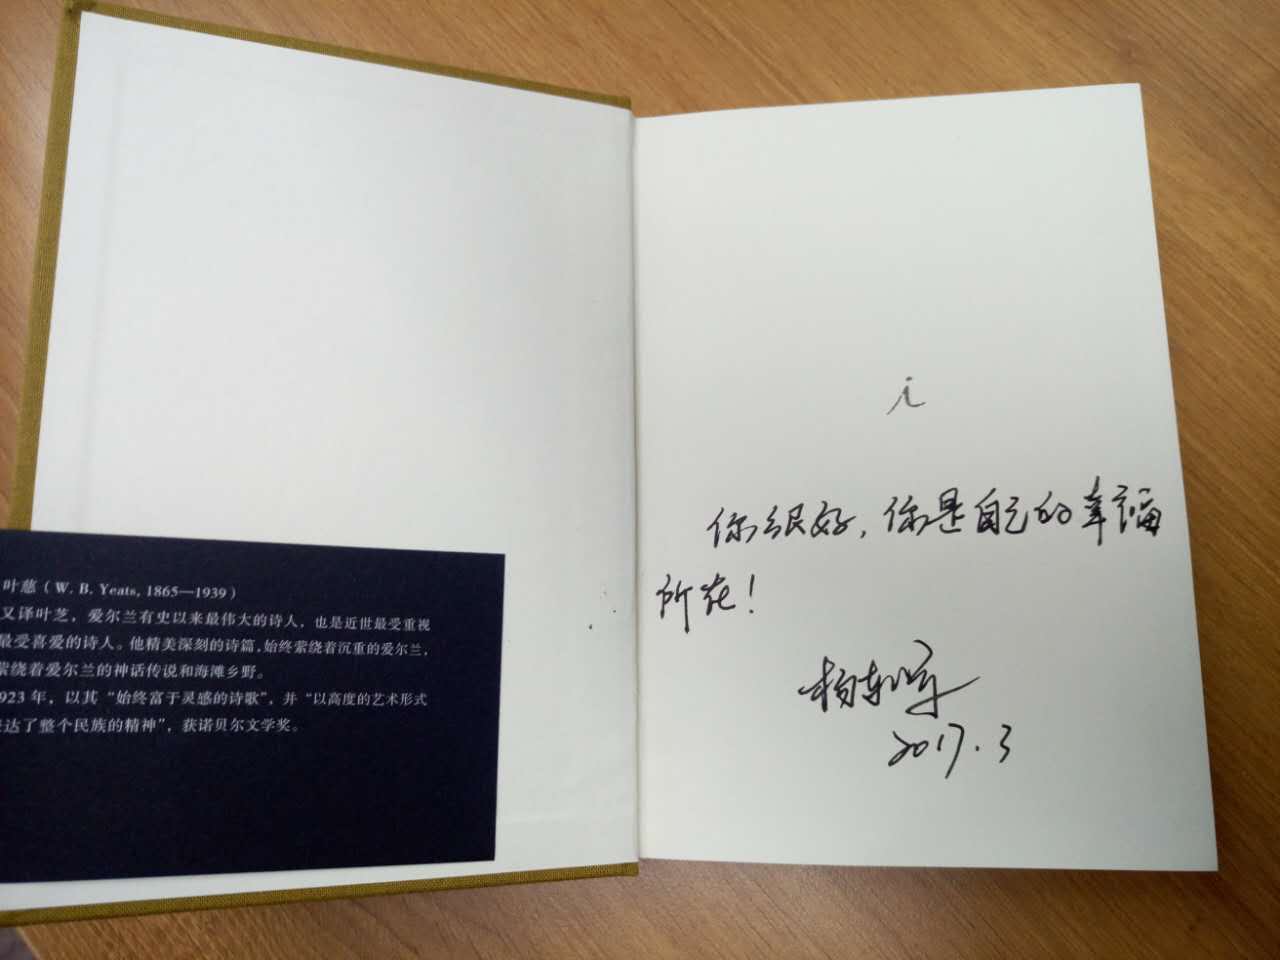 叶慈（W. B. Yeats, 1865—1939）
又译叶芝，爱尔兰有史以来最伟大的诗人，也是近世最受重视
最受喜爱的诗人。他精美深刻的诗篇，始终萦绕着沉重的爱尔兰，
萦绕着爱尔兰的神话传说和海滩乡野。
923 年，以其“始终富于灵感的诗歌”，并“以高度的艺术形式
表达了整个民族的精神”，获诺贝尔文学奖。
i
你很好，你是自己的幸福
所在！
杨东
2017.3